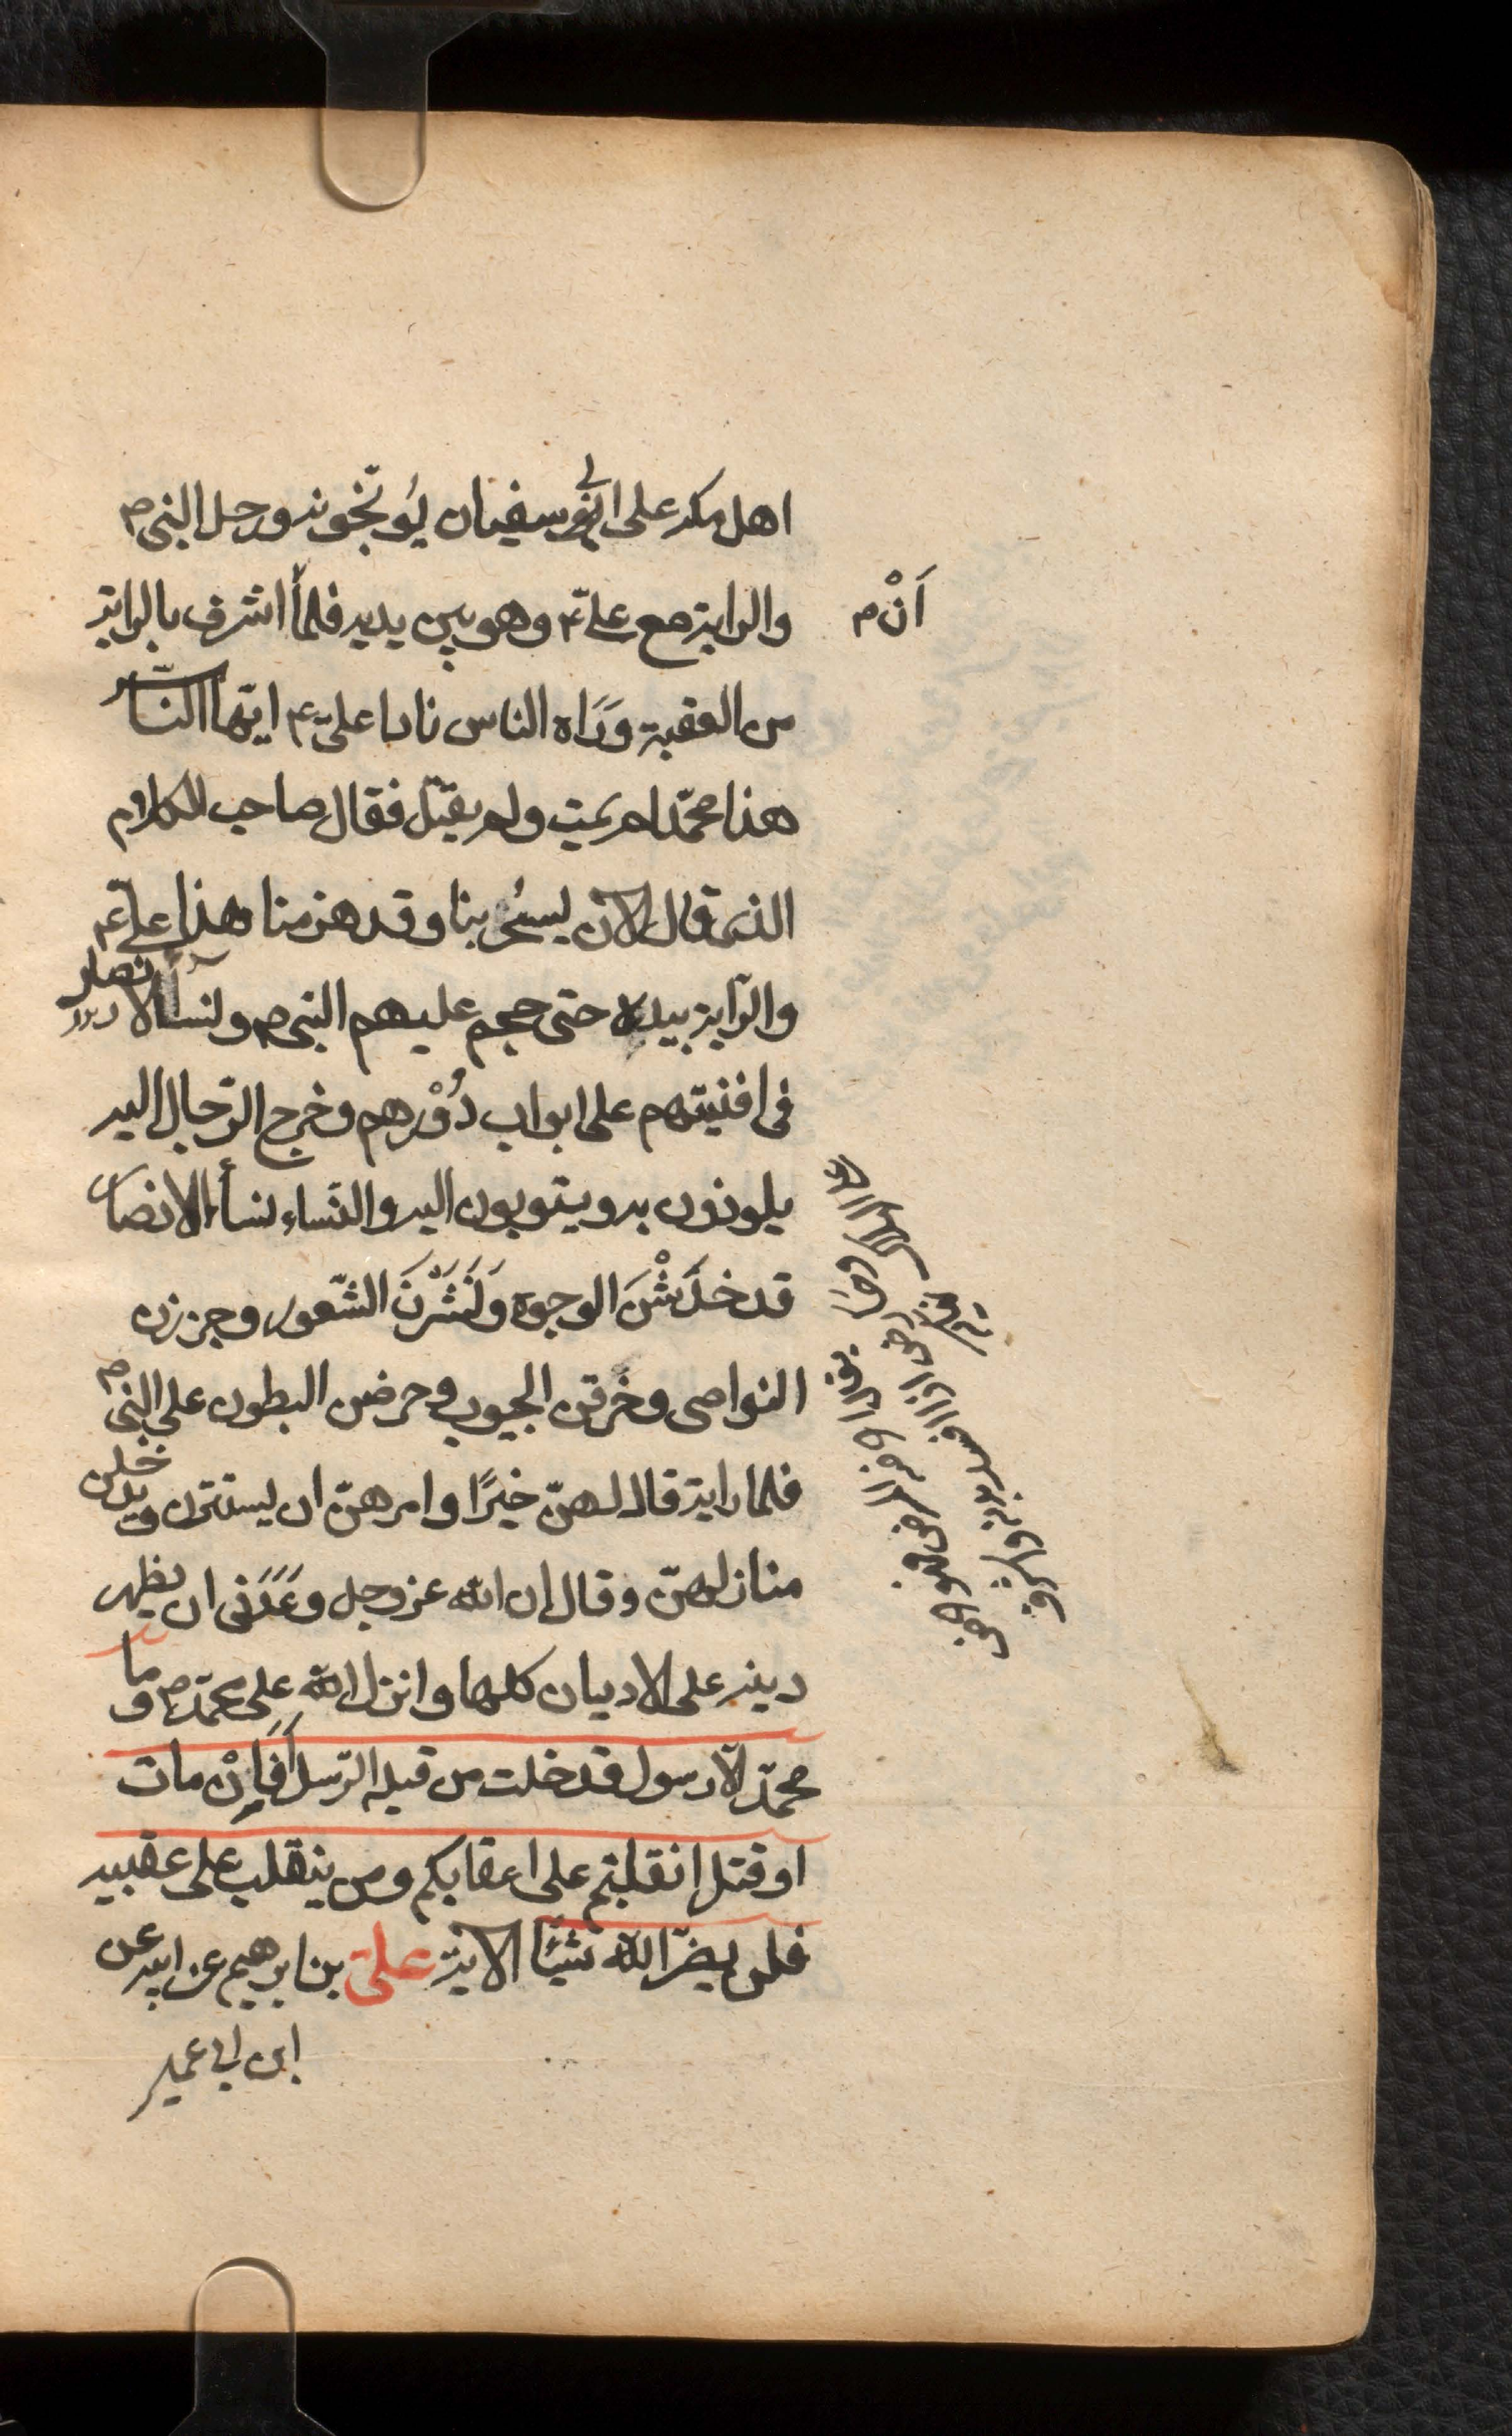 اهل مكة على ابى سفيان يُوَبّخونه ورحل النبى ص
والراية مع علىّ ع وهو بين يديه فلمّا ان اشرف بالراية
من العقبة وَرَاه الناس نادا علىّ ع ايّها النّاس
هذا محمّد لم يمت ولم يقتل فقال صاحب الكلام
الذى قال الان يسخر بنا وقد هزمنا هذا علىّ ع
والرّاية بيده حتى هجم عليهم النبى ص ونسآء الانصار
فى افنيتهم على ابواب دُوْرهم وخرج الرّجال اليه
يلوذون به ويتوبون اليه والنّساء نسأ الانصار
قد خدَشْنَ الوجوه وَنَشَرْنَ الشّعور وجززن
النواصى وخَرقن الجيوب وحرضن البطون على النبى ص
فلما راينه قال لهنّ خيرًا وامرهنّ ان يستترن ويدخلن
منازلهنّ وقال ان الله عز وجل وَعَدَنى ان يظهر
دينه على الاديان كلها وانزل الله على محمّد ص وما
محمّد الّا رسول قد خلت من قبله الرّسل أَفَاِنْ مات
او قتل انقلبتم على اعقابكم ومن ينقلب على عقبيه
فلن يضرّ الله شيئًا الاية علىّ بن ابرهيم عن ابيه عن
ابن ابى عمير